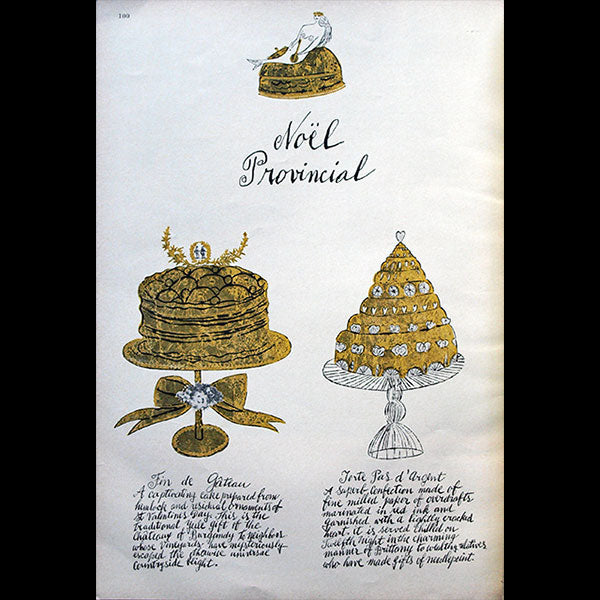 100
Noël
Provincial
Fin de Gâteau
A captivating cake prepared from
hemlock and residual ornaments of
St Valentin's Day. This is the
traditional Yule gift of the
Châteaux of Burgundy to neighbors
whose vineyards have mysteriously
escaped the otherwise universal
countryside blight.
Torte Pas d'Argent
A superb confection made of
fine milled paper of overdrafts
marinated in red ink and
garnished with a lightly cracked
heart. it is served chilled on
Twelfth night in the charming
manner of Brittany to wealthy relatives
who have made gifts of needlepoint.